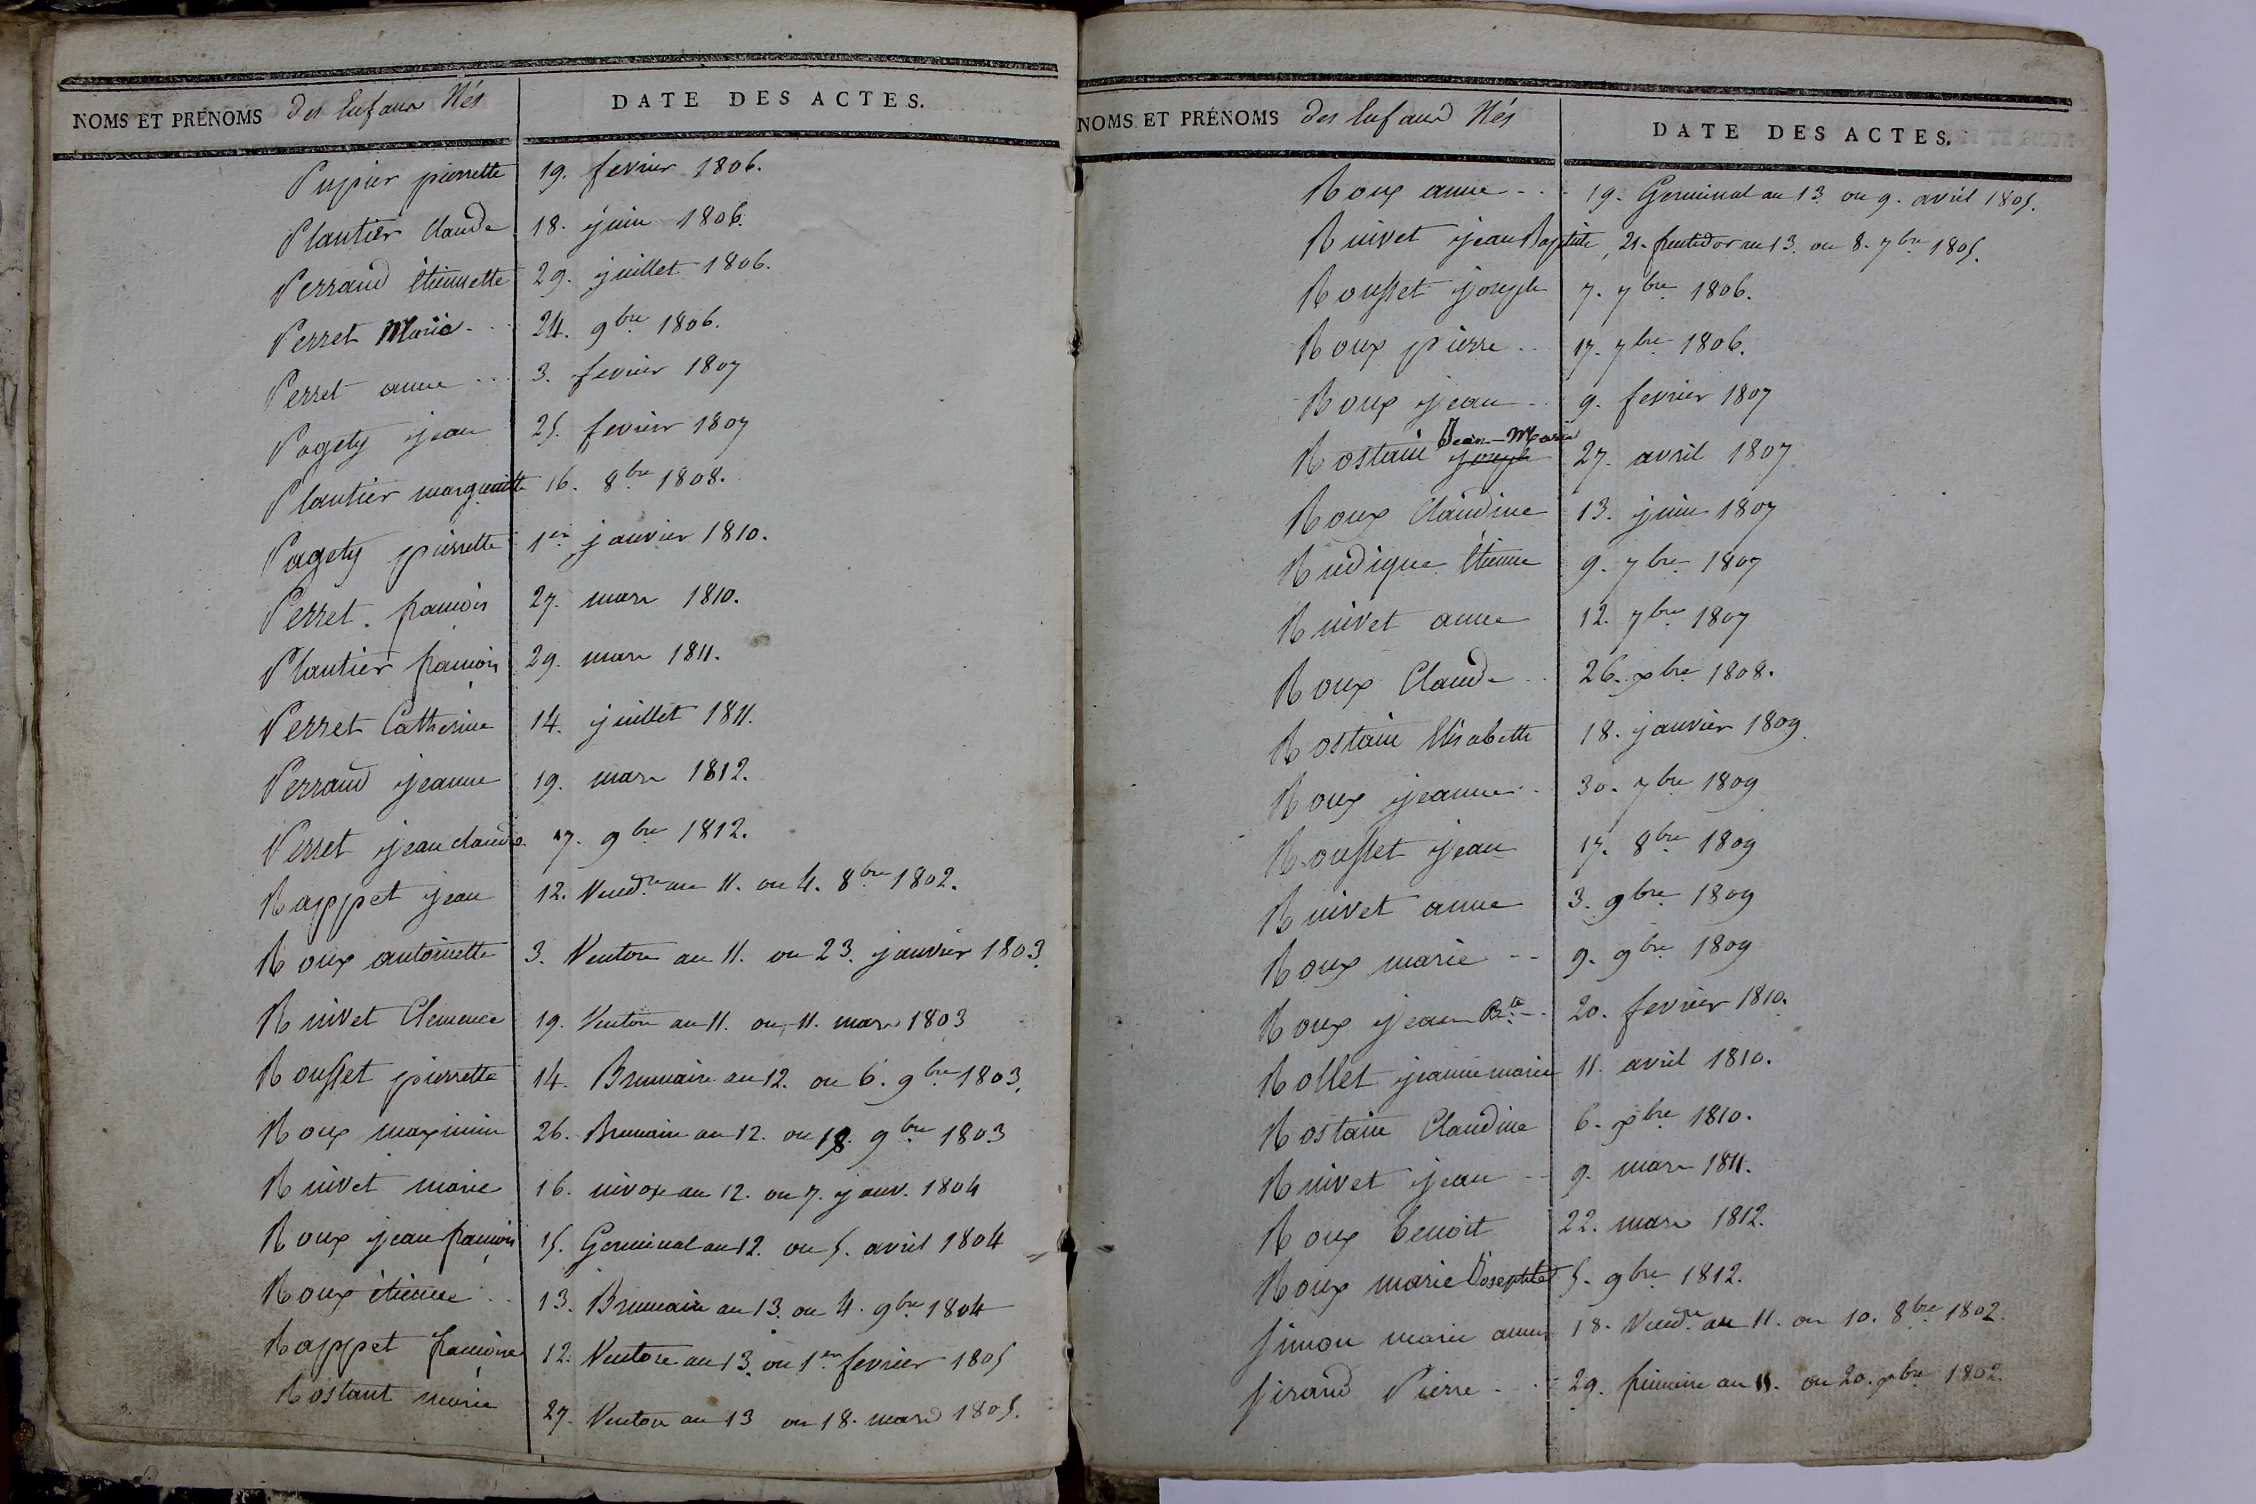 NOMS ET PRÉNOMS des Enfans Nés DATE DES ACTES.
Pupier pierrette 19. fevrier 1806.
Plantier Claude 18. juin 1806.
Perraud étiennette 29. juillet 1806.
Perret Marie 24. 9bre 1806.
Perret anne 3. fevrier 1807
Pagety jean 25. fevrier 1807
Plantier margueritte 16. 8bre 1808.
Pagety pierrette 1er janvier 1810.
Perret françois 27. mars 1810.
Plantier françois 29. mars 1811.
Perret Catherine 14. juillet 1811.
Perraud jeanne 19. mars 1812.
Perret jean claude 17. 9bre 1812.
Rappet jean 12. Vendre an 11. ou 4. 8bre 1802.
Roux antoinette 3. Ventose an 11. ou 23. janvier 1803.
Ruivet Clemence 19. Ventose an 11. ou 11. mars 1803
Rousset pierrette 14. Brumaire an 12. ou 6. 9bre 1803.
Roux maximin 26. Brumaire an 12. ou 18. 9bre 1803
Ruivet marie 16. nivose an 12. ou 7. janv. 1804
Roux jean françois 15. Germinal an 12. ou 5. avril 1804
Roux étienne 13. Brumaire an 13. ou 4. 9bre 1804
Rappet françoise 12. Ventose an 13. ou 1er fevrier 1805
Rostant marie 27. Ventose an 13 ou 18. mars 1805.
NOMS ET PRÉNOMS des Enfans Nés DATE DES ACTES.
Roux anne 19. Germinal an 13 ou 9. avril 1805.
Ruivet jean Baptiste, 21. fructidor an 13. ou 8. 7bre 1805.
Rousset joseph 7. 7bre 1806.
Roux pierre 17. 7bre 1806.
Roux jean 9. fevrier 1807
Jean-Marie
Rostain joseph 27. avril 1807
Roux Claudine 13. juin 1807
Rudigue Etienne 9. 7bre 1807
Ruivet anne 12. 7bre 1807
Roux Claude 26. xbre 1808.
Rostain Elisabeth 18. janvier 1809
Roux jeanne 30. 7bre 1809
Rousset jean 17. 8bre 1809
Ruivet anne 3. 9bre 1809
Roux marie 9. 9bre 1809
Roux jean Bte 20. fevrier 1810.
Rollet jeanne marie 11. avril 1810.
Rostain Claudine 6. xbre 1810.
Ruivet jean 9. mars 1811.
Roux benoit 22. mars 1812.
Roux marie Josephte 5. 9bre 1812.
Simon marie anne 18. Vendre an 11. ou 10. 8bre 1802.
Siraud Pierre 29. frimaire an 11. ou 20. xbre 1802.